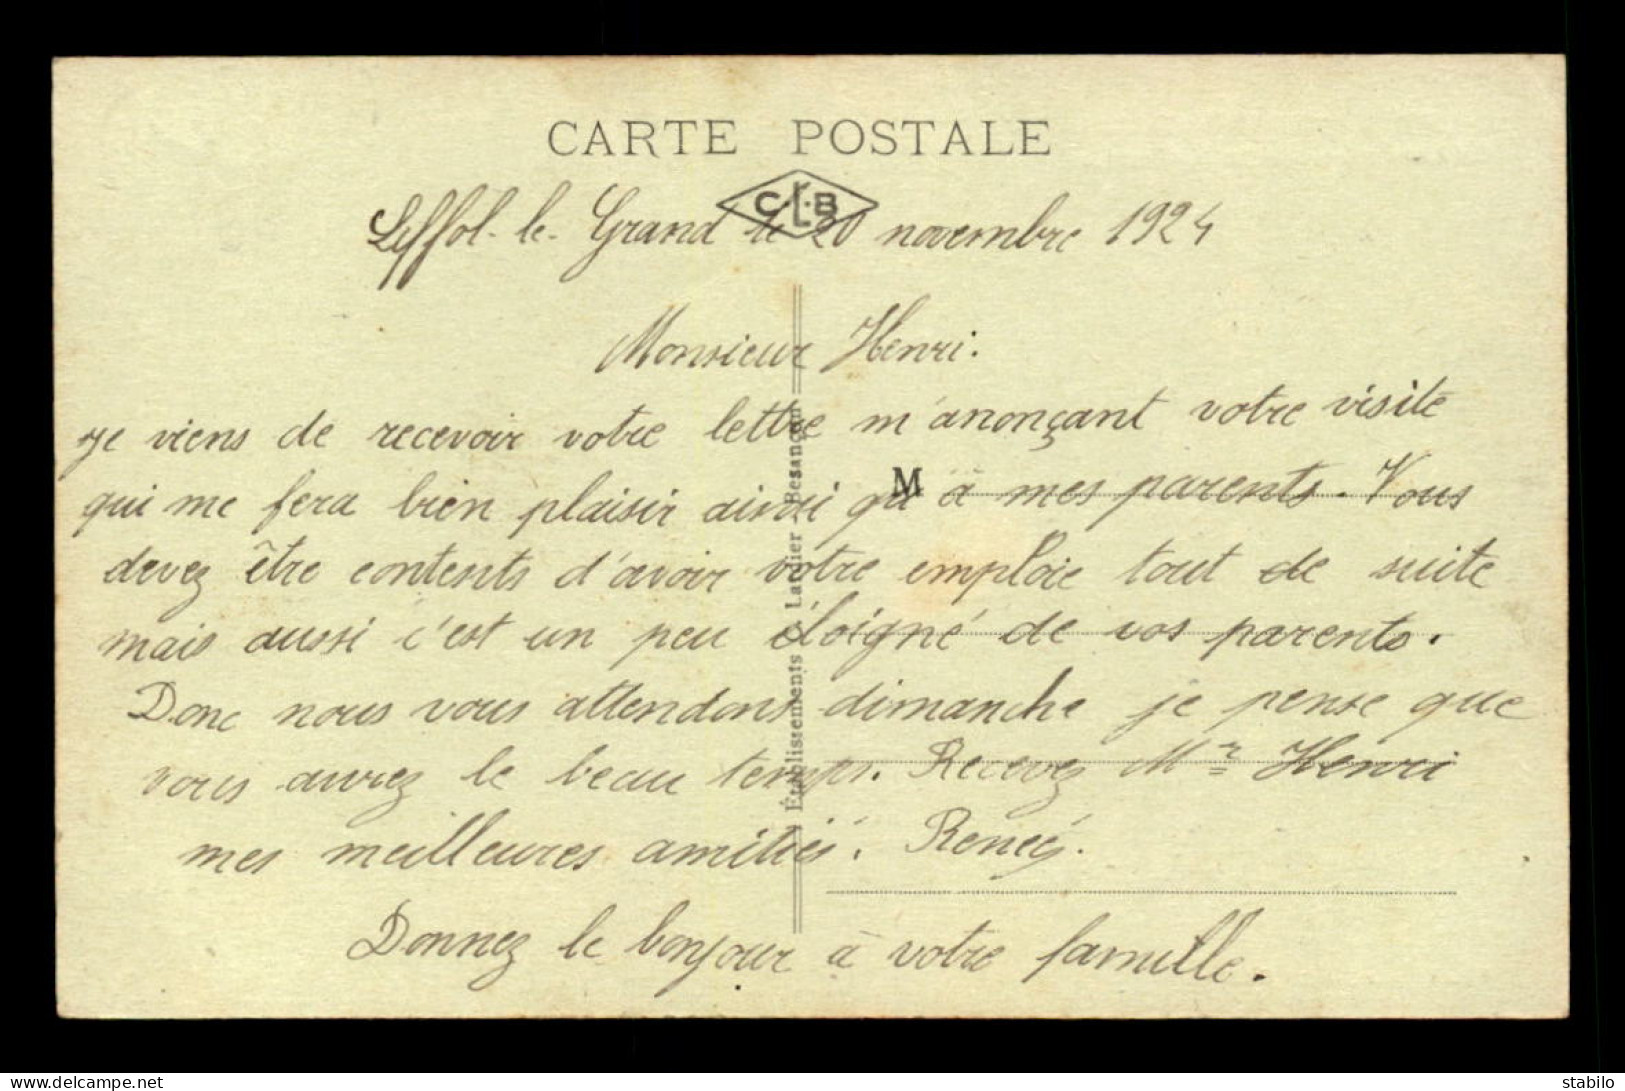 CARTE POSTALE
C.L.B
Liffol-le-Grand le 20 novembre 1924
Monsieur Henri.
je viens de recevoir votre lettre m'anonçant votre visite
qui me fera bien plaisir ainsi qu'à mes parents. Vous
M
devez être contents d'avoir votre emploie tout de suite
mais aussi c'est un peu éloigné de vos parents.
Donc nous vous attendons dimanche je pense que
vous aurez le beau temps. Recevez Mr Henri
mes meilleures amitiés. Renée.
Donnez le bonjour à votre famille.
Établissements C. Lardier - Besançon
delcampe.net
stabilo